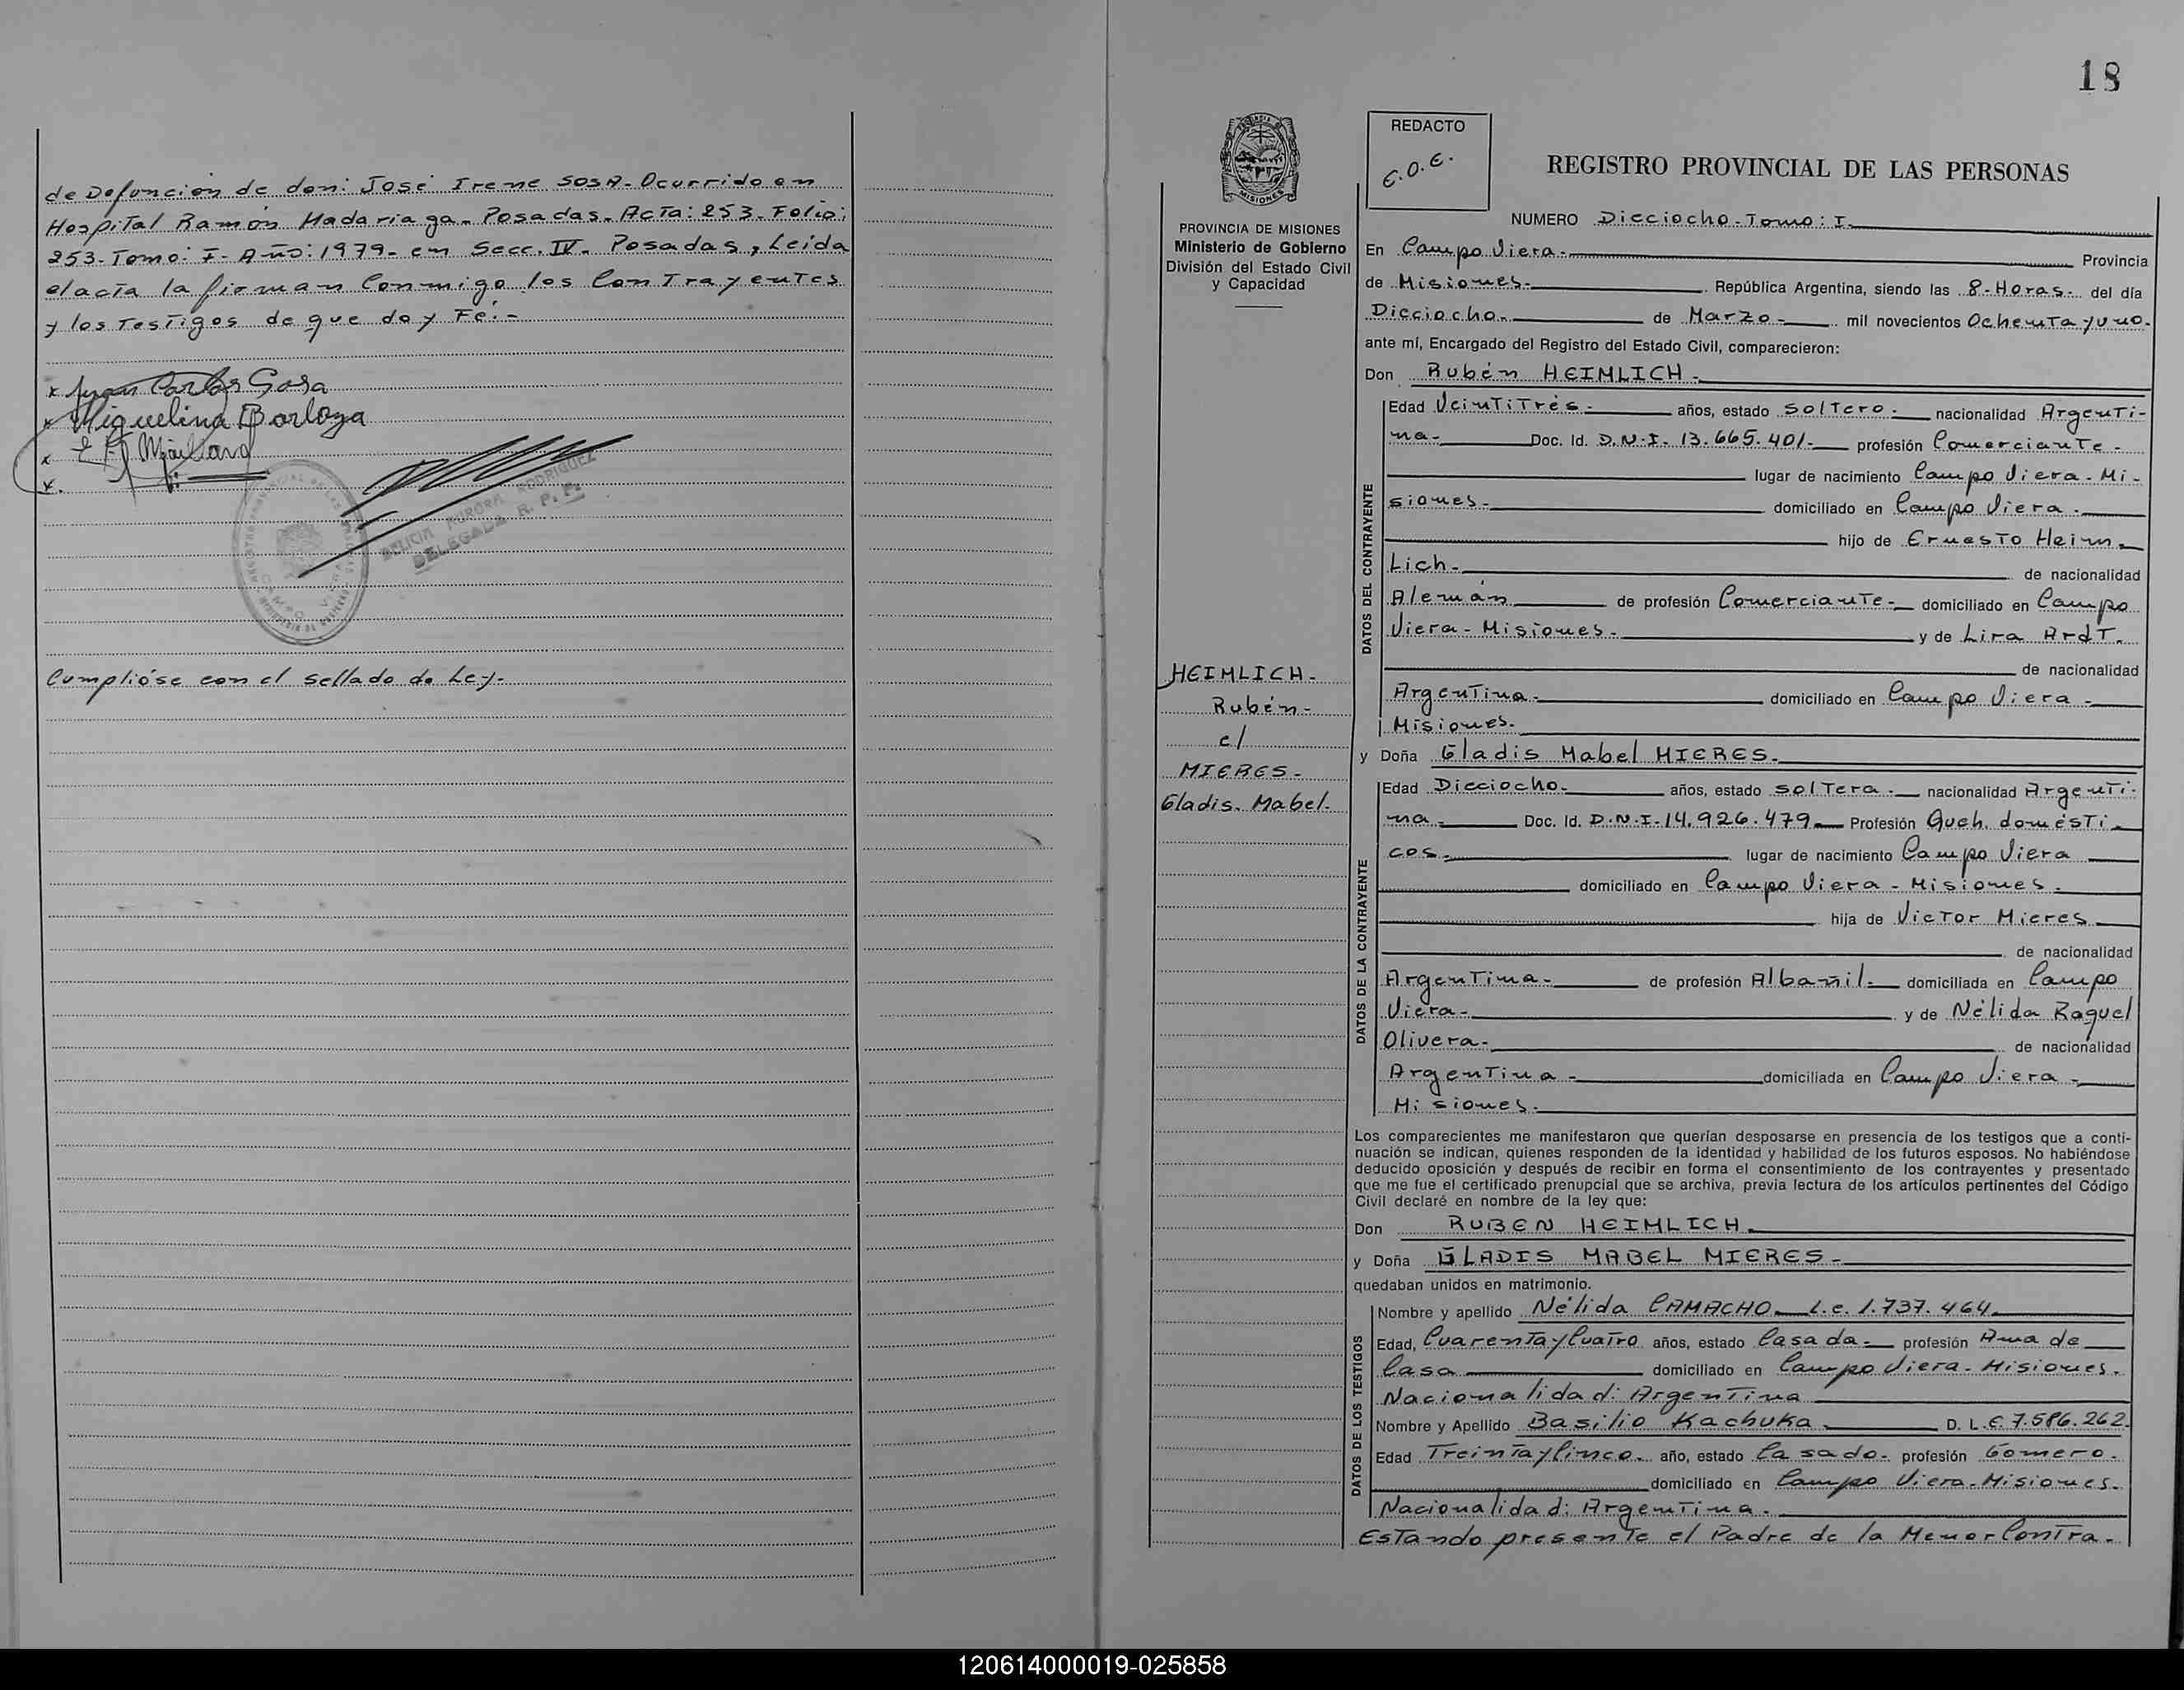 de Defunción de don: José Irene SOSA- Ocurrido en
Hospital Ramón Madariaga- Posadas- Acta: 253- Folio:
253- Tomo: I- Año: 1979- en Secc. IV- Posadas, Leida
el acta la firman conmigo los Contrayentes
y los Testigos de que doy Fé.-
x Juan Carlos Sosa
x Miguelina Barloza
x
x.
ALICIA AURORA RODRIGUEZ
DELEGADA R. P. P.
Cumplióse con el sellado de Ley-
18
REDACTO
C.O.E.
REGISTRO PROVINCIAL DE LAS PERSONAS
PROVINCIA DE MISIONES
Ministerio de Gobierno
División del Estado Civil
y Capacidad
NUMERO Dieciocho-Tomo: I-
En Campo Viera- Provincia
de Misiones- República Argentina, siendo las 8-Horas- del día
Dieciocho- de Marzo- mil novecientos Ochenta y uno-
ante mí, Encargado del Registro del Estado Civil, comparecieron:
Don Rubén HEIMLICH-
DATOS DEL CONTRAYENTE
Edad Veintitrés- años, estado soltero- nacionalidad Argenti-
na- Doc. Id. D.N.I- 13.665.401- profesión Comerciante-
lugar de nacimiento Campo Viera- Mi-
siones- domiciliado en Campo Viera-
hijo de Ernesto Heim-
Lich- de nacionalidad
Alemán de profesión Comerciante- domiciliado en Campo
Viera- Misiones- y de Lira Ardt-
de nacionalidad
Argentina- domiciliado en Campo Viera-
Misiones-
HEIMLICH-
Rubén-
c/
MIERES-
Gladis- Mabel-
y Doña Gladis Mabel MIERES-
DATOS DE LA CONTRAYENTE
Edad Dieciocho- años, estado soltera- nacionalidad Argenti-
na- Doc. Id. D.N.I-14.926.479- Profesión Queh. domésti-
cos- lugar de nacimiento Campo Viera
domiciliado en Campo Viera- Misiones-
hija de Victor Mieres
de nacionalidad
Argentina- de profesión Albañil- domiciliada en Campo
Viera- y de Nélida Raquel
Olivera- de nacionalidad
Argentina- domiciliada en Campo Viera-
Misiones-
Los comparecientes me manifestaron que querían desposarse en presencia de los testigos que a conti-
nuación se indican, quienes responden de la identidad y habilidad de los futuros esposos. No habiéndose
deducido oposición y después de recibir en forma el consentimiento de los contrayentes y presentado
que me fue el certificado prenupcial que se archiva, previa lectura de los artículos pertinentes del Código
Civil declaré en nombre de la ley que:
Don RUBEN HEIMLICH-
y Doña GLADIS MABEL MIERES-
quedaban unidos en matrimonio.
DATOS DE LOS TESTIGOS
Nombre y apellido Nélida CAMACHO- L.C. 1.737.464-
Edad, Cuarenta y Cuatro años, estado Casada- profesión Ama de
Casa domiciliado en Campo Viera- Misiones-
Nacionalidad: Argentina
Nombre y Apellido Basilio Kachuka- D. L.E. 7.586.262-
Edad Treinta y Cinco- año, estado Casado- profesión Gomero-
domiciliado en Campo Viera- Misiones-
Nacionalidad: Argentina-
Estando presente el Padre de la Menor Contra-
120614000019-025858